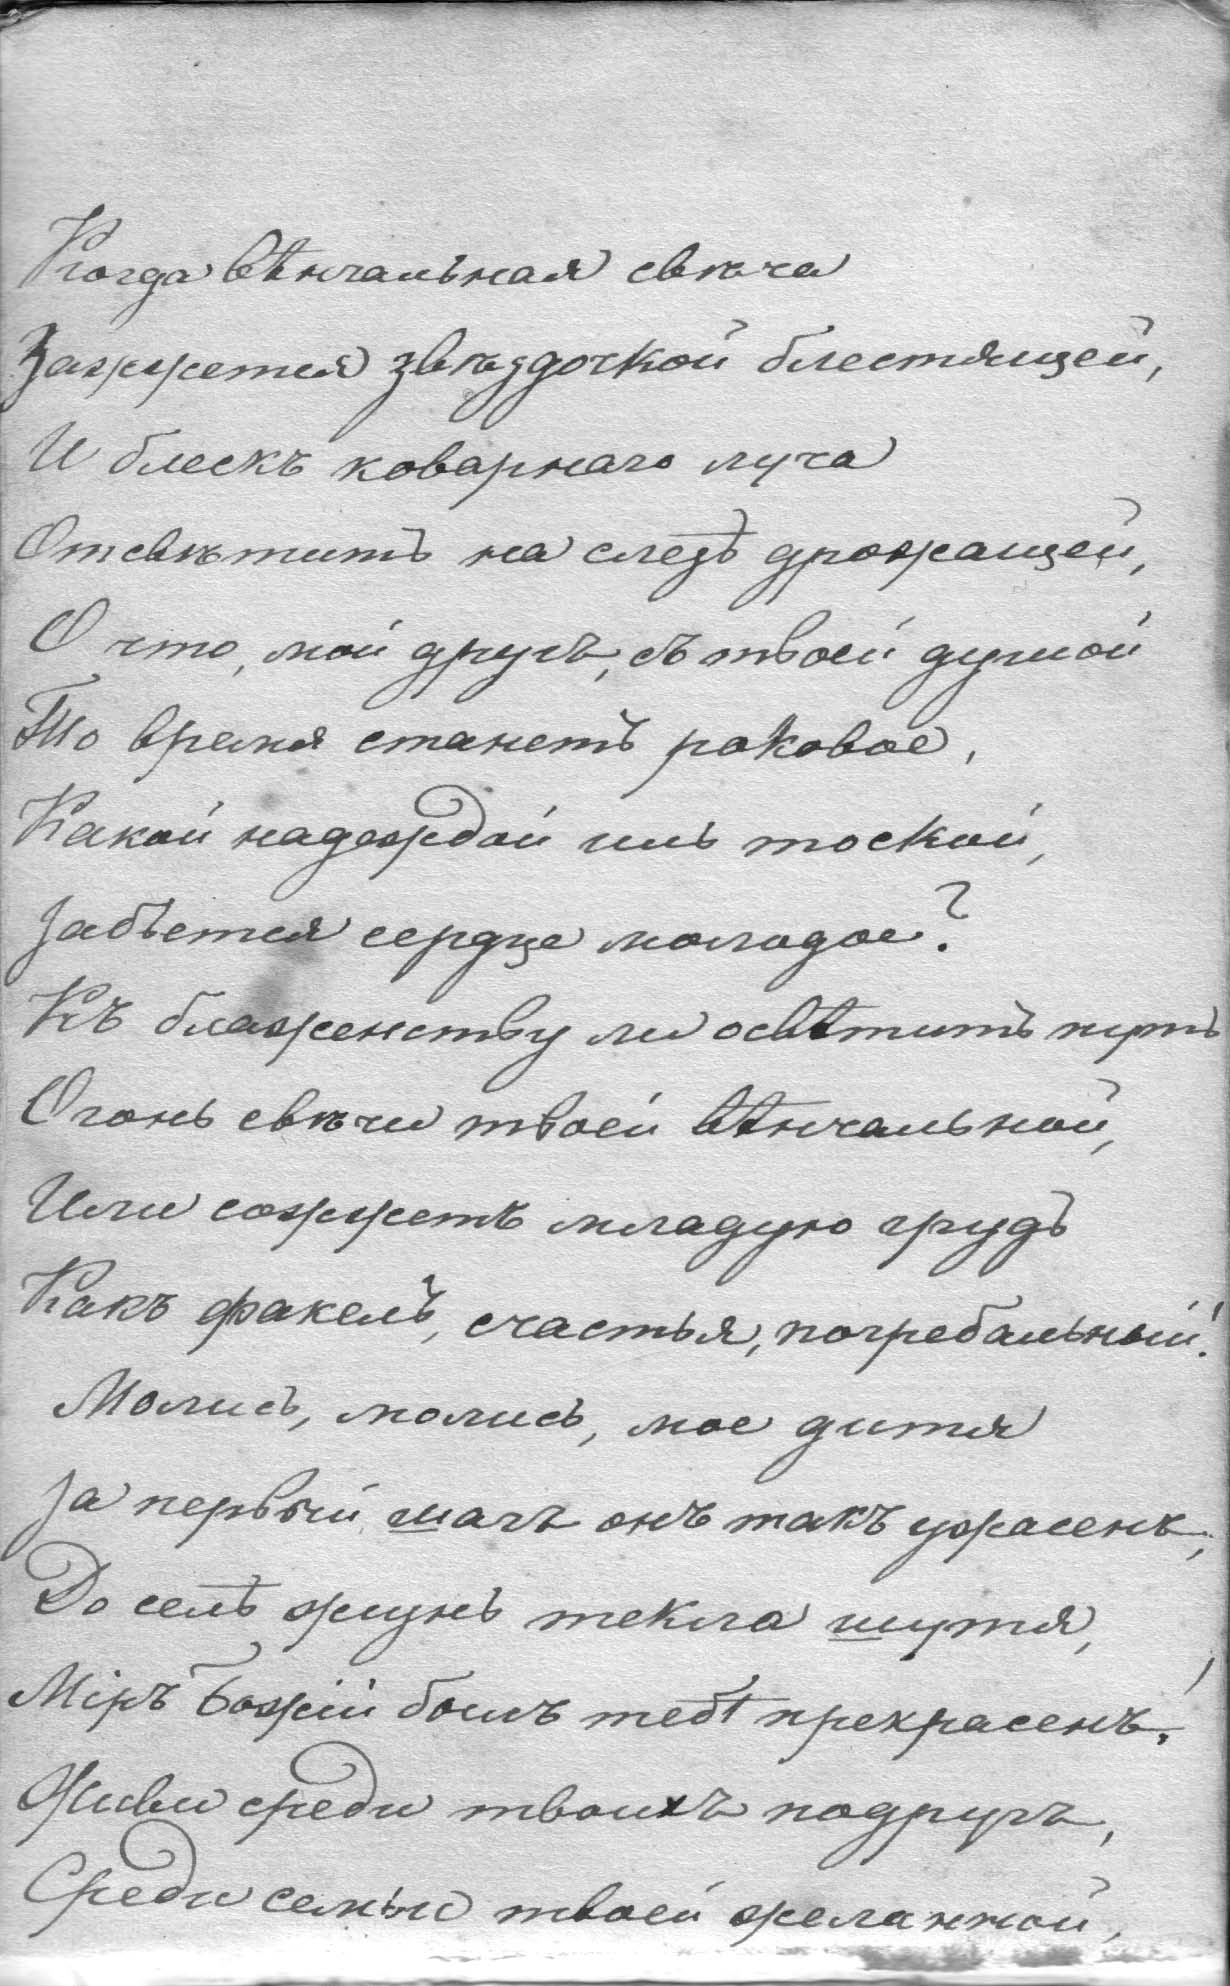 Когда вѣнчальная свѣча
Зажжется звѣздочкой блестящей,
И блескъ коварнаго луча
Отсвѣтитъ на слезѣ дрожащей,
О что, мой другъ, съ твоей душой
То время станетъ роковое,
Какой надеждой иль тоской,
Забьется сердце молодое?
Къ блаженству ли освѣтитъ путь
Огонь свѣчи твоей вѣнчальной,
Или сожжетъ младую грудь
Какъ факелъ, счастья, погребальный!
Молись, молись, мое дитя
За первый шагъ онъ такъ ужасенъ,
До селѣ жизнь текла шутя,
Міръ Божій былъ тебѣ прекрасенъ!
Живи среди твоихъ подругъ,
Среди семьи твоей желанной,